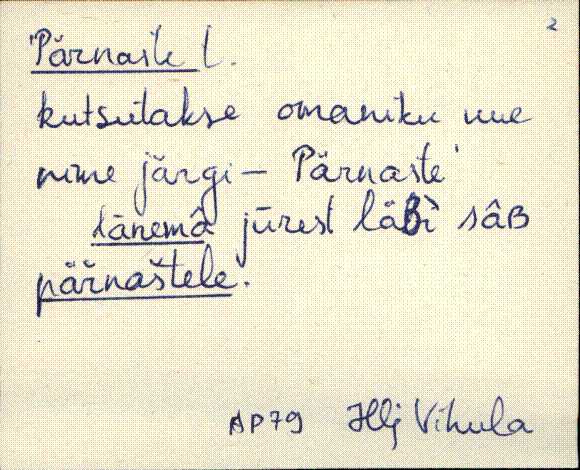 2
Pärnaste t.
kutsutakse omaniku uue
nime järgi – Pärnaste
tänemā jūrest läʙì sâʙ
päřnaštele.
AP79 Hlj Vihula